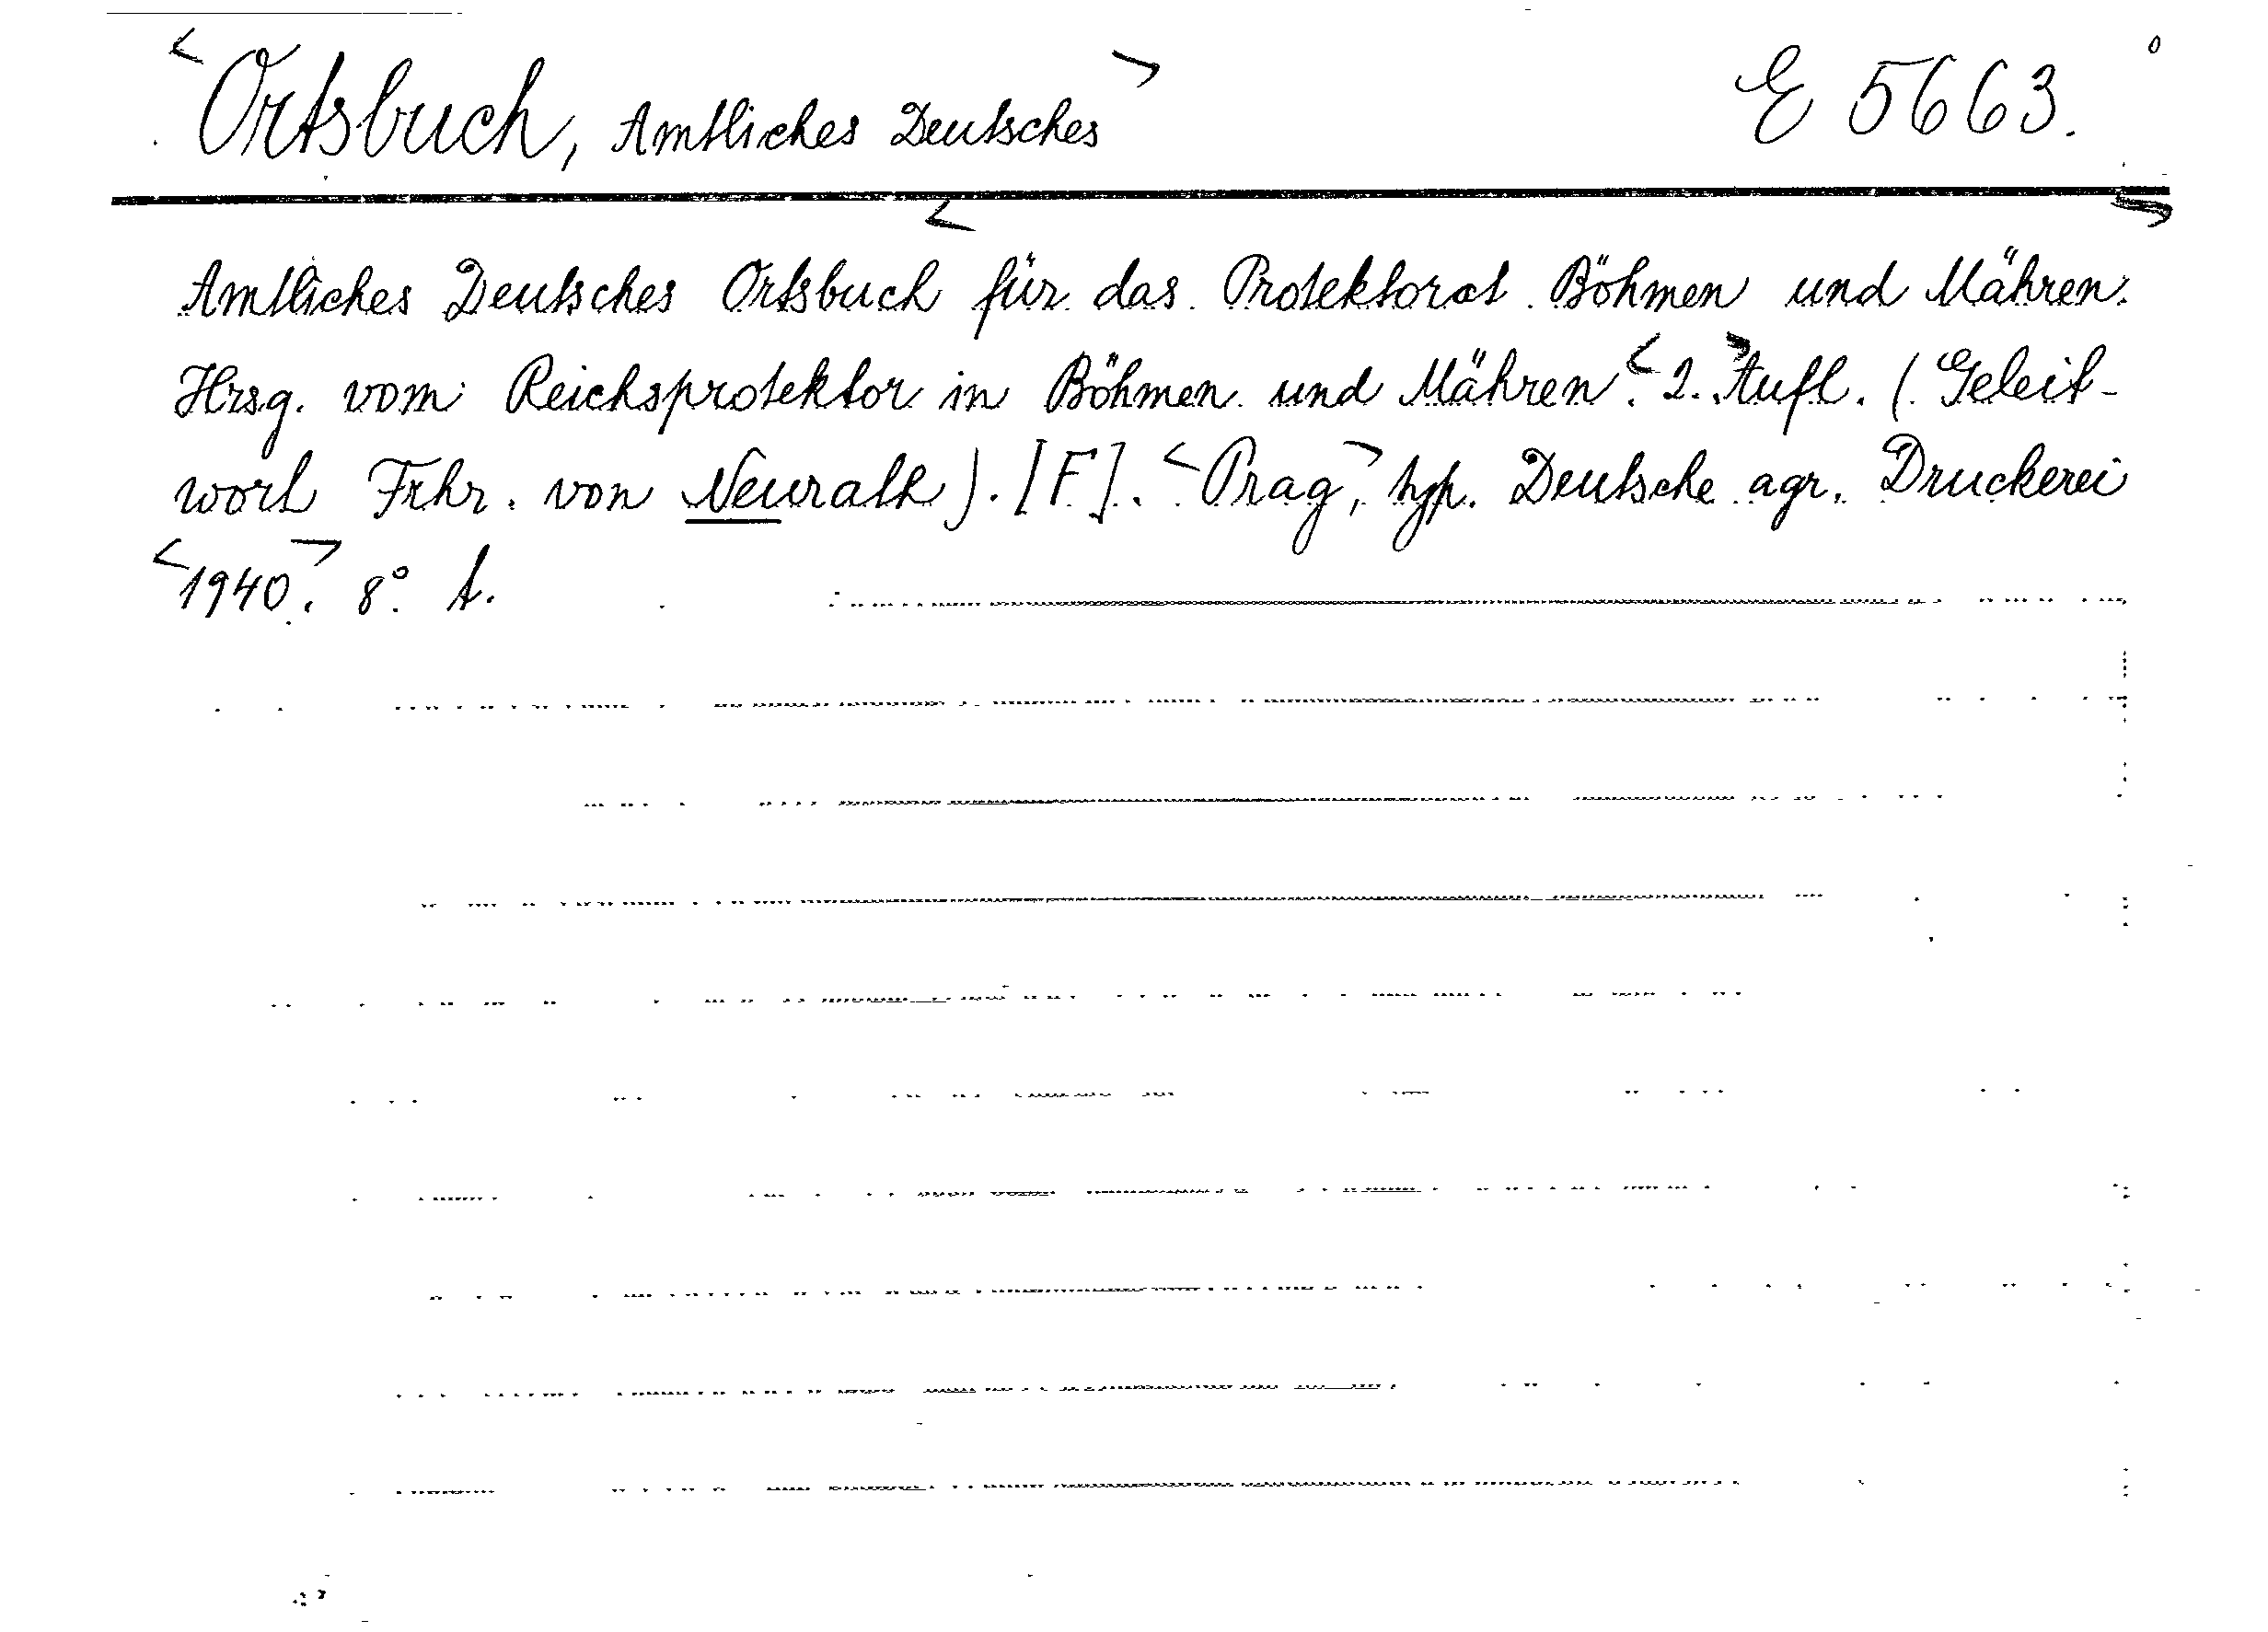 <Ortsbuch, Amtliches Deutsches> E 5663.
Amtliches Deutsches <Ortsbuch für das Protektorat Böhmen und Mähren.>
Hrsg. vom Reichsprotektor in Böhmen und Mähren. <2.> Aufl. (Geleit-
wort Frhr. von Neurath). [F]. <Prag>, typ. Deutsche agr. Druckerei
<1940>. 8°.